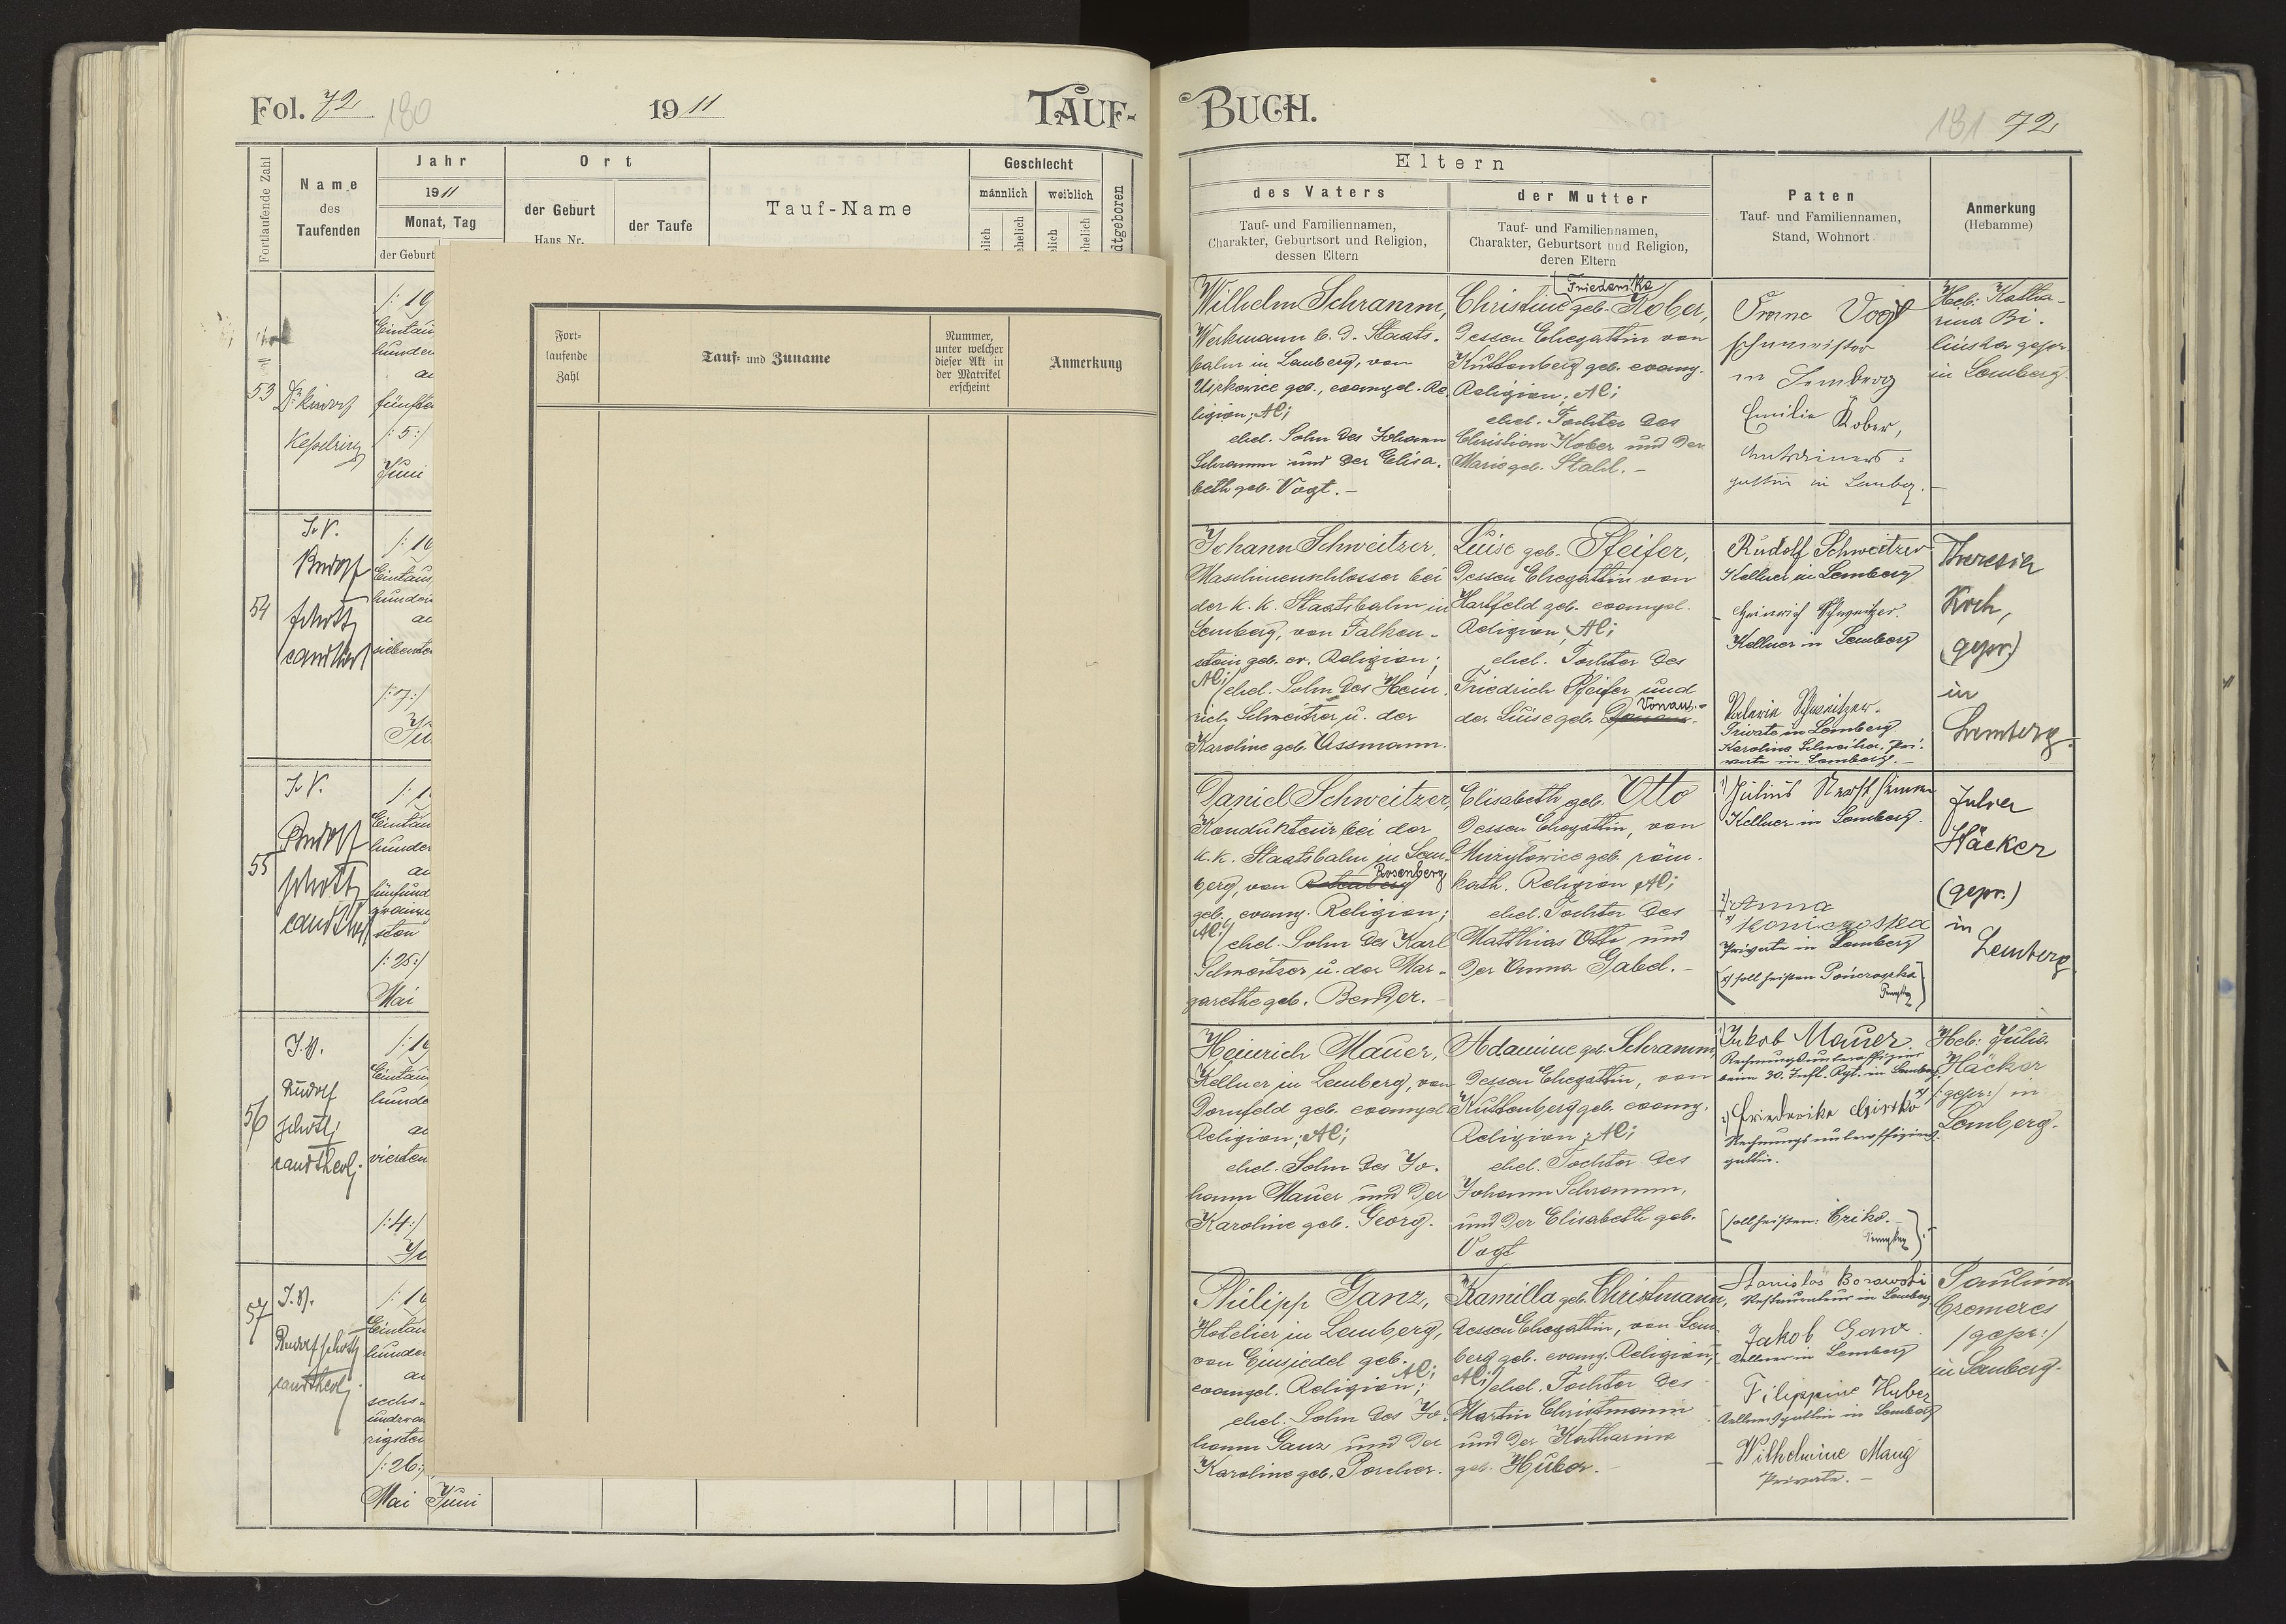 Fol. 72 180
1911
TAUF-
Fortlaufende Zahl
Name
des
Taufenden
Jahr
1911
Monat, Tag
der Geburt
Ort
der Geburt
Haus Nr.
der Taufe
Tauf-Name
Geschlecht
männlich weiblich
53
Kesselring
/: 19
Eintau
hunder
fünfte
/: 5 :/
Juni
54
I. V.
Rudolf
Schott
cand theol
/: 19
Eintaus
hunder
siebente
/: 7 :/
Ju
55
I. V.
Rudolf
Schott
cand theol
/: 1
Eintau
hunder
fünfund
zwanzig
sten
/: 25 :/
Mai
56
I. V.
Rudolf
Schott
cand theol.
/: 19
Eintau
hunde
vierten
/: 4 :/
Ju
57
I. V.
Rudolf Schott
cand theol.
/: 19
Eintau
hunder
sechs-
undzwan
zigsten
/: 26 :/
Mai Juni
Fort-
laufende
Zahl
Tauf- und Zuname
Nummer,
unter welcher
dieser Akt in
der Matrikel
erscheint
Anmerkung
BUCH.
181 72
Eltern
des Vaters
Tauf- und Familiennamen,
Charakter, Geburtsort und Religion,
dessen Eltern
der Mutter
Tauf- und Familiennamen,
Charakter, Geburtsort und Religion,
deren Eltern
Paten
Tauf- und Familiennamen,
Stand, Wohnort
Anmerkung
(Hebamme)
Wilhelm Schramm,
Werkmann b. d. Staats-
bahn in Lemberg, von
Uszkowice geb., evangel. Re-
ligion; AC;
ehel. Sohn des Johann
Schramm und der Elisa-
beth geb. Vogt. –
Friederike
Christine geb. Kober,
dessen Ehegattin von
Kuttenberg geb. evang.
Religion; AC;
ehel. Tochter des
Christian Kober und der
Marie geb. Stahl. –
Vogt
in Lemberg
Emilie Kober,
gattin in Lemberg. –
Heb: Katha-
rina Bi-
gepr.
in Lemberg.
Johann Schweitzer,
Maschinenschlosser bei
der k. k. Staatsbahn in
Lemberg, von Falken-
stein geb. ev. Religion;
AC;/ ehel. Sohn des Hein-
rich Schweitzer u. der
Karoline geb. Assmann.
Luise geb. Pfeifer,
dessen Ehegattin von
Hartfeld geb. evangel.
Religion, AC;
ehel. Tochter des
Friedrich Pfeifer und
Vonau.-
der Luise geb.
Rudolf Schweitzer
Kellner in Lemberg
Heinrich Schweitzer.
Kellner in Lemberg
Valerie Schweitzer.
Private in Lemberg.
Karoline Schweitzer. Pri-
vate in Lemberg. –
Theresia
Koch,
(gepr.)
in
Lemberg.
Daniel Schweitzer,
Kondukteur bei der
k. k. Staatsbahn in Lem-
Rosenberg
berg, von Rotenberg
geb., evang. Religion;
AC;/ ehel. Sohn des Karl
Schweitzer u. der Mar-
garethe geb. Bender. –
Elisabeth geb. Otto
dessen Ehegattin, von
Muzylowice geb. röm.
kath. Religion AC;
ehel. Tochter des
Matthias Otto und
der Anna Gabel. –
1) Julius
Kellner in Lemberg.
2) Anna
Private in Lemberg
[x) soll heißen Pońcroszka]
Julia
Häcker
(gepr.)
in
Lemberg
Heinrich Mauer,
Kellner in Lemberg, von
Dornfeld geb. evangel
Religion; AC;
ehel. Sohn des Jo-
hann Mauer und der
Karoline geb. Georg.
Adamine geb. Schramm,
dessen Ehegattin, von
Kuttenberg geb. evang.
Religion; AC;
ehel. Tochter des
Johann Schramm,
und der Elisabeth geb.
Vogt
1) Jakob Mauer
Rechnungsunteroffizier
beim 30. Inft. Rgt. in Lemberg.
2) Friederike
Rechnungsunteroffiziers-
gattin.
[soll heißen: Criko. –]
Heb: Julia
Häcker
/:gepr:/ in
Lemberg.
Philipp Ganz,
Hotelier in Lemberg,
von Einsiedel geb.
evangel. Religion; AC;
ehel. Sohn des Jo-
hann Ganz und der
Karoline geb. Porcher.
Kamilla geb. Christmann,
dessen Ehegattin, von Lem-
berg geb. evang. Religion;
AC;/ ehel. Tochter des
Martin Christmann
und der Katharina
geb. Huber. –
Stanislas Borowski
Restaurateur in Lemberg
Jakob Ganz
Kellner in Lemberg
Filippine Huber
Kellnersgattin in Lemberg
Wilhelmine Mang
Private. –
Paulina
Cremeres
/gepr:/
in Lemberg.